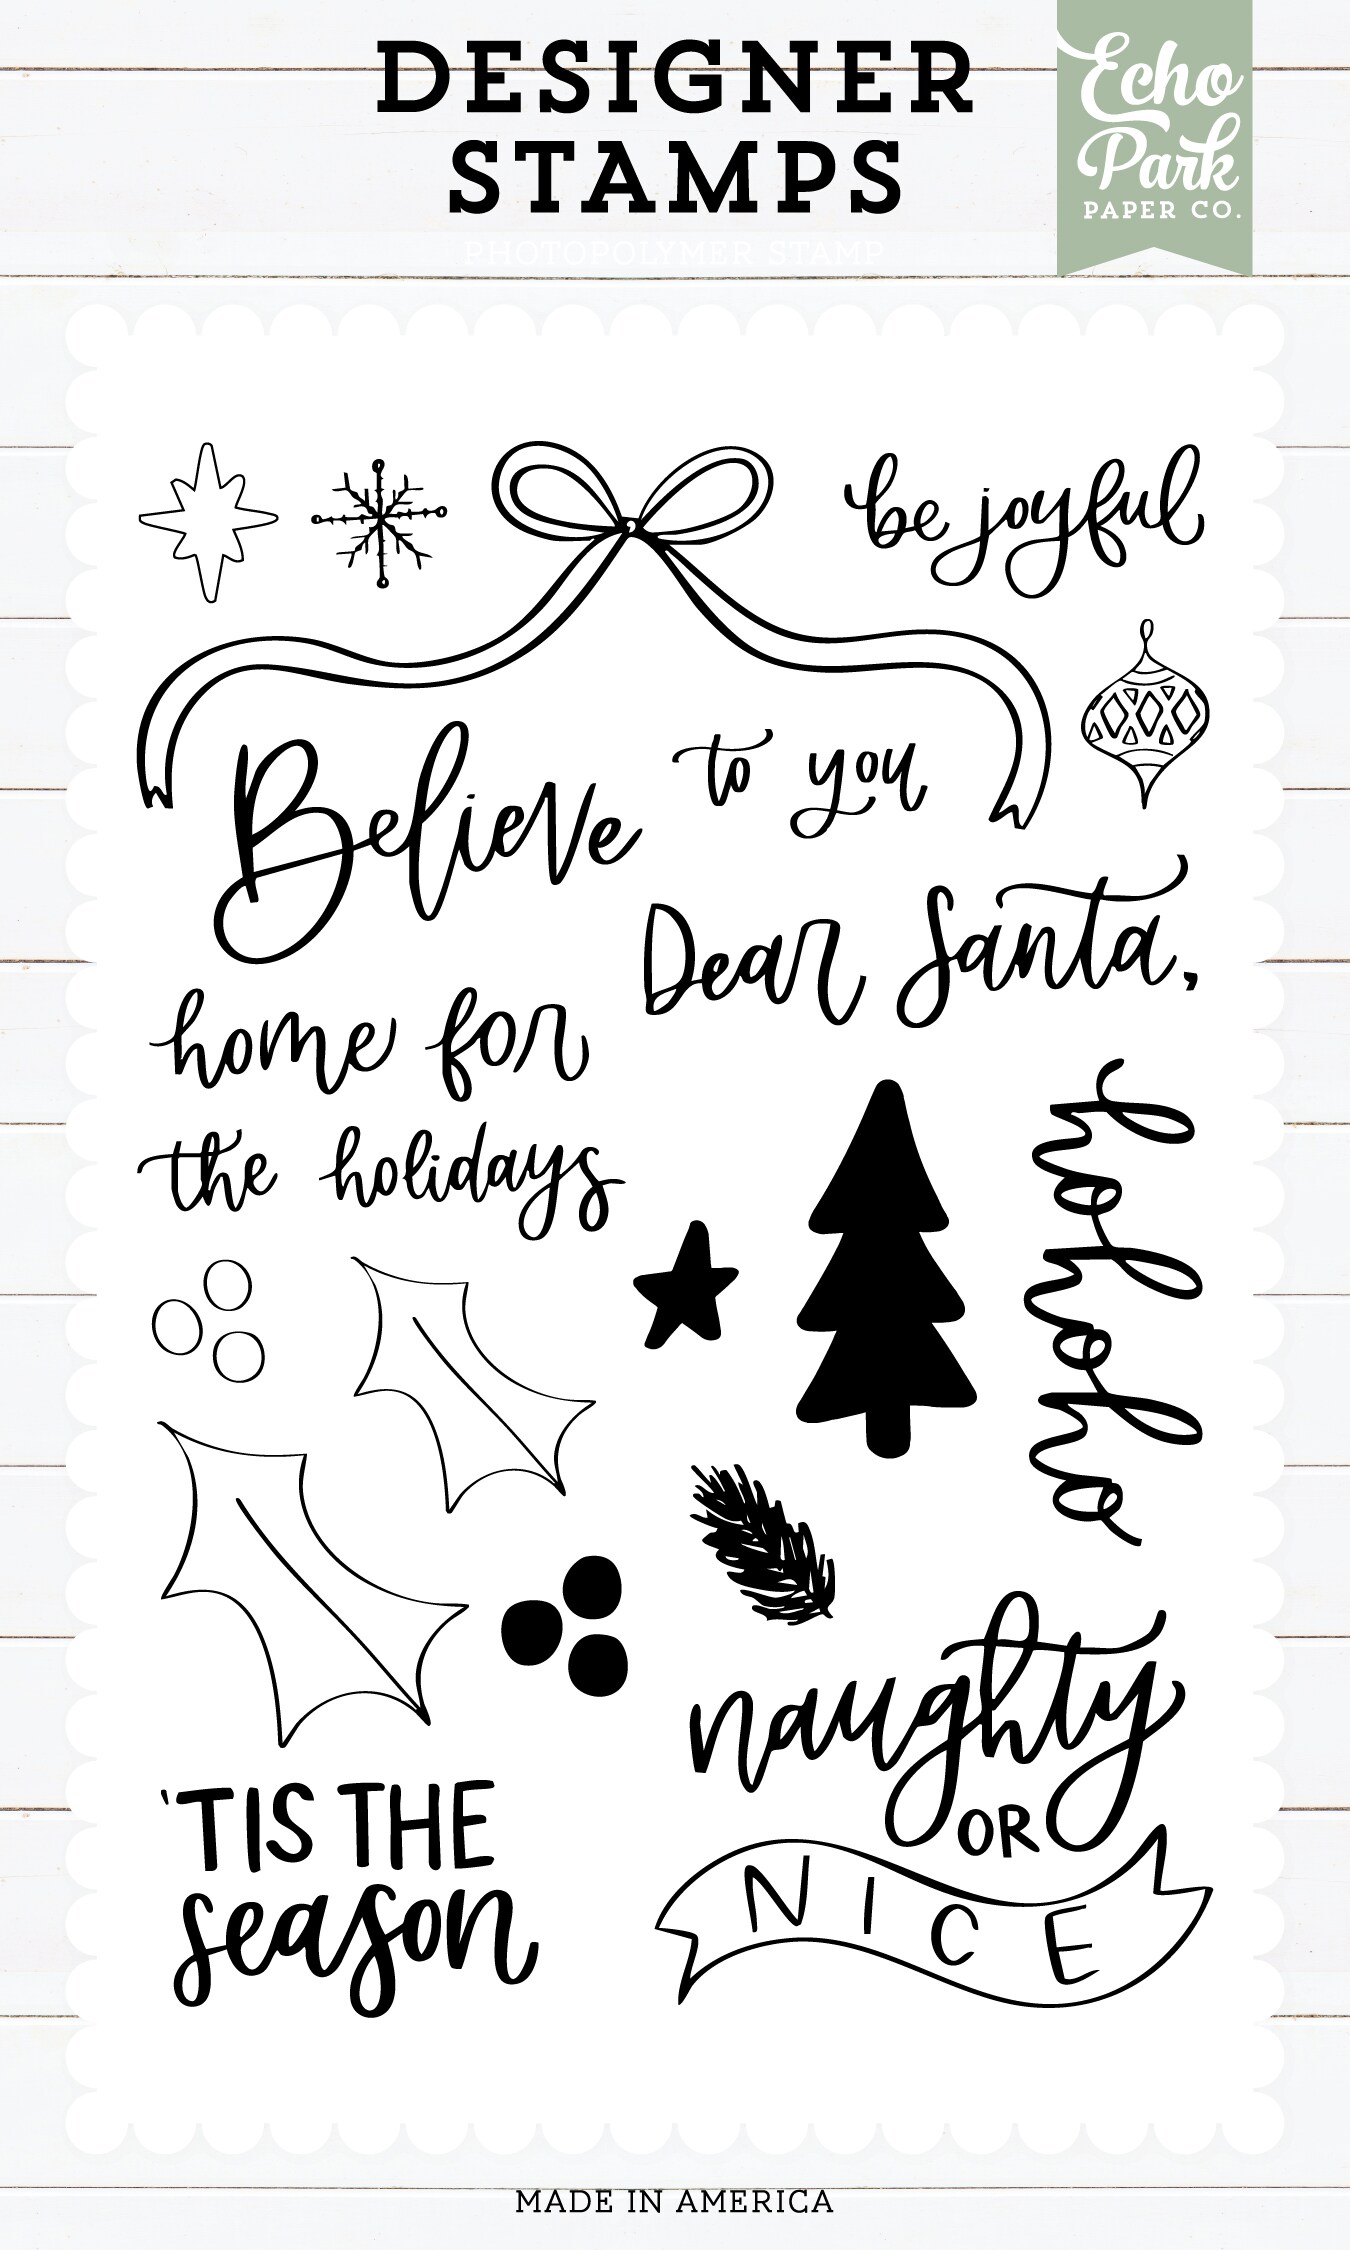 DESIGNER
STAMPS
PHOTOPOLYMER STAMP
Echo
Park
PAPER CO.
be joyful
Believe
to you
Dear Santa,
home for
the holidays
hohoho
naughty
OR
NICE
'TIS THE
season
MADE IN AMERICA